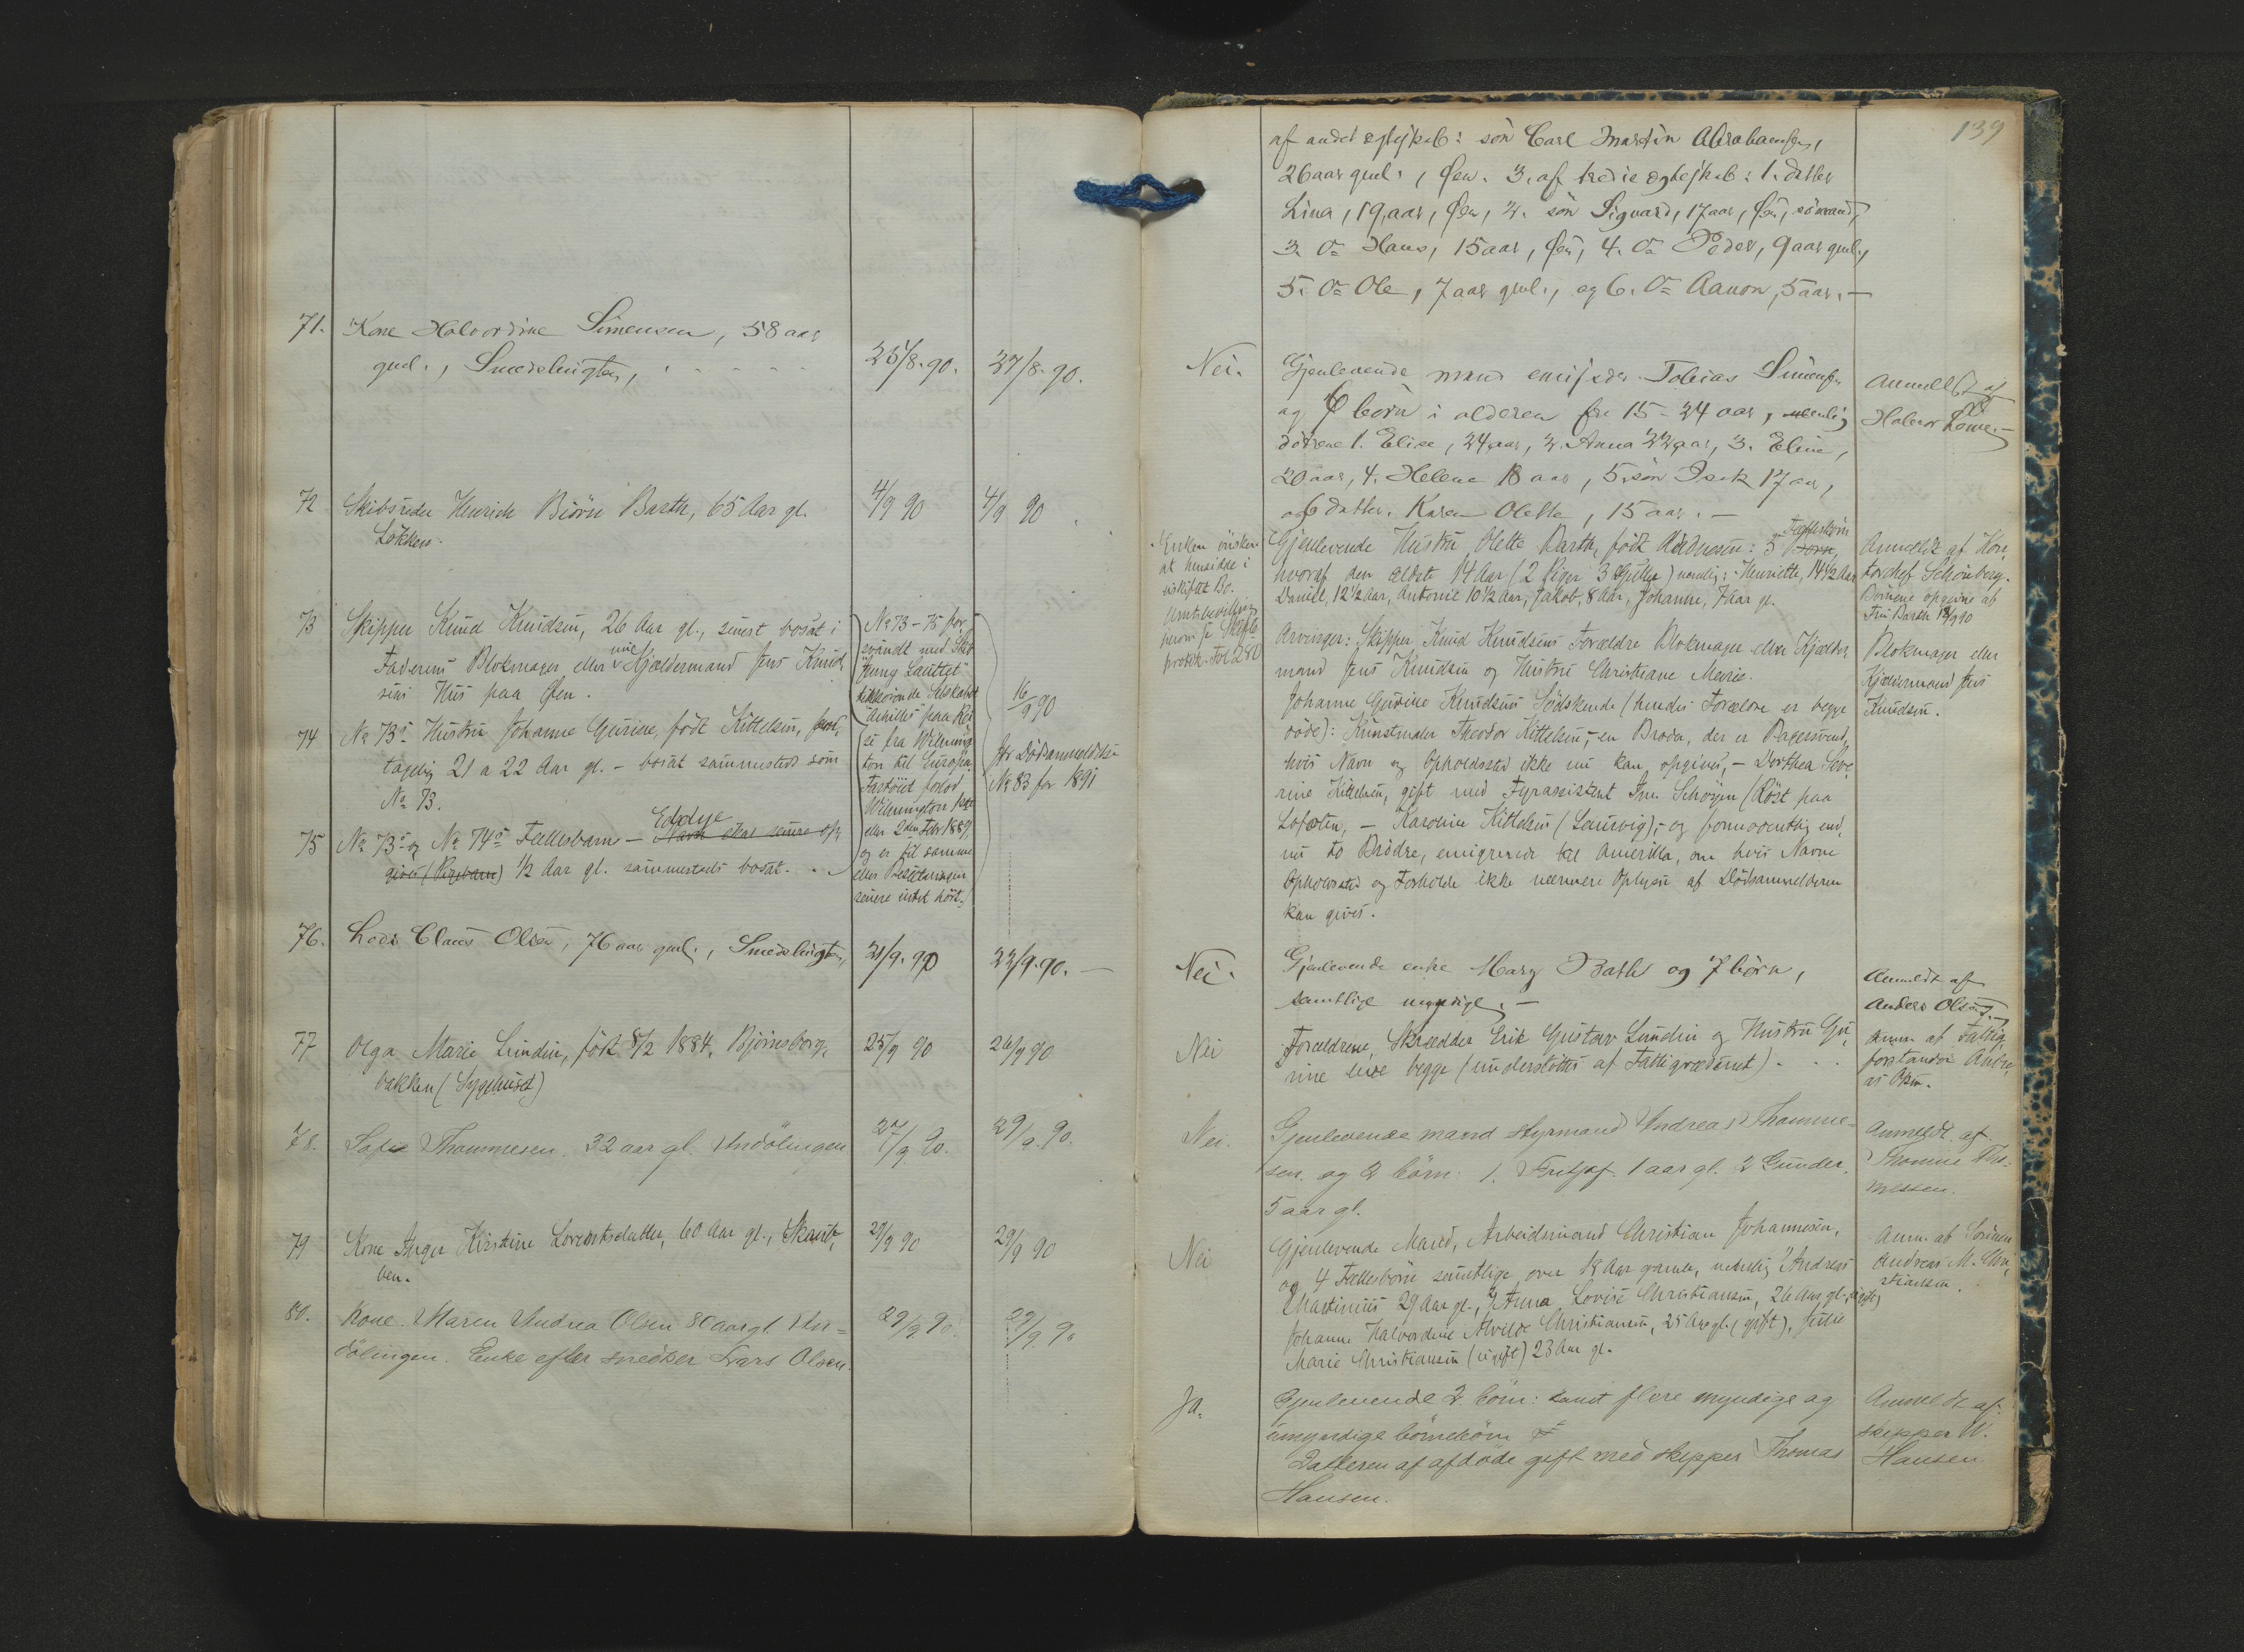 139
af andet egteskab: søn Carl Martin Abrahamsen,
26 aar gml., Øen. 3. af tredie egteskab: 1. datter
Lina, 19 aar, Øen, 2. søn Sigvard, 17 aar, Øen, sømand,
3. do Hans, 15 aar, Øen, 4. do Peder, 9 aar gml.,
5. do Ole, 7 aar gml., og 6. do Aanon, 5 aar. —
71. Kone Halvordine Simensen, 58 aar
gml., Smedsbugten,
25/8. 90. 27/8. 90.
Nei.
Gjenlevende mand Tobias Simensen
og 6 børn i alderen fra 15 - 24 aar, nemlig
døtrene 1. Elise, 24 aar, 2. Anna 22 aar, 3. Eline,
20 aar, 4. Helene 18 aar, 5. søn Isak 17 aar,
og 6 datter. Karen Olette, 15 aar. —
Anmeldt af
Halvor
72 Skibsreder Henrich Biörn Barth, 65 Aar gl.
Løkken.
4/9 90 4/9 90
Enken ønsker
at hensidde i
uskiftet Bo.
Amtsbevilling
protok. Fol 280
Gjenlevende Hustru Olette Barth, født : 5 Fællesbørn
hvoraf den ældste 14 Aar (2 Piger 3 Gutter) nemlig: Henriette, 14 1/2 Aar
Daniel, 12 1/2 Aar, Antonie 10 1/2 Aar, Jakob, 8 Aar, Johanne, 7 Aar gl.
Anmeldt af Kon-
torchef Schönberg.
Børnene opgivne af
Fru Barth 12/9 90
73 Skipper Knud Knudsen, 26 Aar gl., senest bosat i
Faderens Blokmager eller nu Kjældermand Jens Knud-
sens Hus paa Øen.
74 No 73s Hustru Johanne Gurine, født Kittelsen,
21 a 22 Aar gl. - bosat sammesteds som
No 73.
75 No 73s og No 74s Fællesbarn - Eddye
1/2 Aar gl. sammesteds bosat.
No 73 - 75 for-
svundt med Skib
tilhørende Selskabet
"Achilles" paa Rei-
se fra Wilming-
ton til Europa.
Fartøiet forlod
Wilmington 1ste
eller 2den Febr 1889,
og er til samme
eller Besætningen
senere intet hørt.
16/9 90
jfr Dødsanmeldelse
No 83 for 1891
Arvinger: Skipper Knud Knudsens Forældre Blokmager eller Kjælder-
mand Jens Knudsen og Hustru Christiane Marie.
Johanne Gurine Knudsens Södskende (hendes Forældre er begge
døde): Kunstmaler Theodor Kittelsen, - en Broder, der er Bagersvend,
hvis Navn og Opholdssted ikke nu kan opgives, - Dorthea Seve-
rine Kittelsen, gift med Fyrassistent Schøyen (Røst paa
Lofoten, — Karoline Kittelsen (Laurvig), - og formodentlig end-
nu to Brødre, emigrerede til Amerika, om hvis Navne
Opholdssted og Forholde ikke nærmere Oplysn. af Dødsanmelderen
kan gives.
Blokmager eller
Kjældermand Jens
Knudsen.
76. Lods Claus Olsen, 76 aar gml., Smedsbugten,
21/9. 90 22/9. 90. —
Nei.
Gjenlevende enke Mary Bath og 7 børn,
samtlige myndige. —
Anmeldt af
Anders Olsen.
77 Olga Marie Lundin, født 8/2 1884, Bjørnsberg-
bakken (Sygehuset)
25/9 90 26/9 90
Nei
Forældrene, Skrædder Erik Gustav Lundin og Hustru Gu-
rine leve begge (understøttes af Fattigvæsenet).
Anm. af Fattig-
forstander Andre-
as Olsen.
78. Sofie Thommesen. 32 aar gl. Undölingen
27/9 90. 29/9. 90.
Nei.
Gjenlevende mand styrmand Andreas Thomme-
sen. og 2 börn: 1. Fritjof. 1 aar gl. 2 Gunder.
5 aar gl.
Anmeldt af
Thomine Tho-
messen.
79 Kone Inger Kirstine Lorentsdatter, 60 Aar gl.,
ven.
29/9 90 29/9 90
Nei
Gjenlevende Mand, Arbeidsmand Christian Johannesen,
og 4 Fællesbørn samtlige over 18 Aar gamle, nemlig Andreas
Martinius 29 Aar gl., Anna Lovise Christiansen, 26 Aar gl. (ugift)
Johanne Halvordine Alvilde Christiansen, 25 Aar gl. (gift), Julie
Marie Christiansen (ugift) 23 Aar gl.
Anm. af Sønnen
Andreas M. Chri-
stiansen.
80. Kone. Maren Andrea Olsen 80 aar gl. Un-
dölingen. Enke efter snedker Lars Olsen.
29/9 90. 29/9 90
Ja.
Gjenlevende 2 börn: samt flere myndige og
umyndige börnebörn
Datteren af afdöde gift med skipper Thomas
Hansen.
Anmeldt af
skipper W.
Hansen